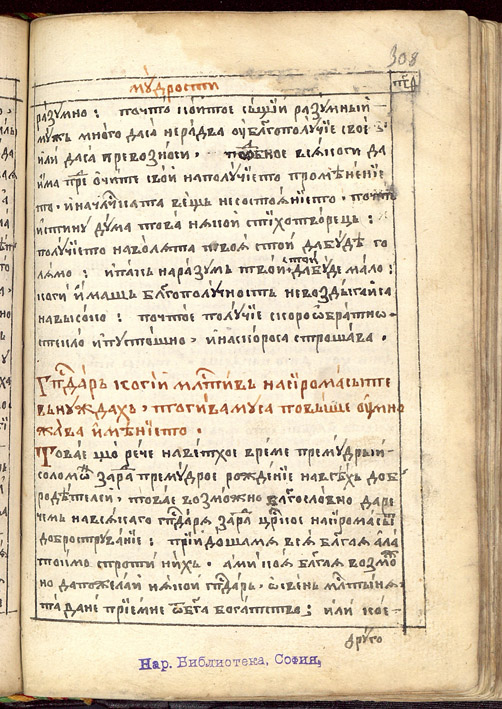 308
мꙋдрости
разꙋмно: почто кои тое сꙋщїи разꙋмный
мꙋжъ много даса нерадва ꙋ благополꙋчїе свое
или даса превозноси, подобное всякоги да
има пре очите свои наполꙋчїето промѣненїе
то, и началната вещь несостоянїето, почто
истинꙋ дꙋма това някой стїхотворецъ:
полꙋчїето наволята твоя стой да бꙋдѣ го
лямо: и пакъ наразꙋмъ твой стой да бꙋде мало:
коги имашъ благополꙋчность невоздыгайса
нависоко: почто полꙋчїе скоро ѡбратно
стекло и пꙋстошно, и наскороса строшава.
Гпⷭ҇дарь когїи млⷭ҇тивъ на сиромасыте
въ нꙋждахъ, тогива мꙋса повыще ꙋмно
жава имѣнїето.
Товае що рече наветхое време премꙋдрый
соломѡ зара премꙋдрое рожденїе на всѣхъ доб
родѣтелей, товае возможно благословно да ре
чемъ на всякаго гпⷭ҇даря зара црⷭ҇кое на сиромасы
добрострꙋванїе: прїидоша мя вся благая ала
токмо стропи нихъ. ами коя благая возмо
но да пожелай някой гпⷭ҇дарь, ѡсвенъ млⷭ҇тыня
та да не прїемне ѿ бга богатство: или кое
дрꙋго
Нар. Библиотека, София,